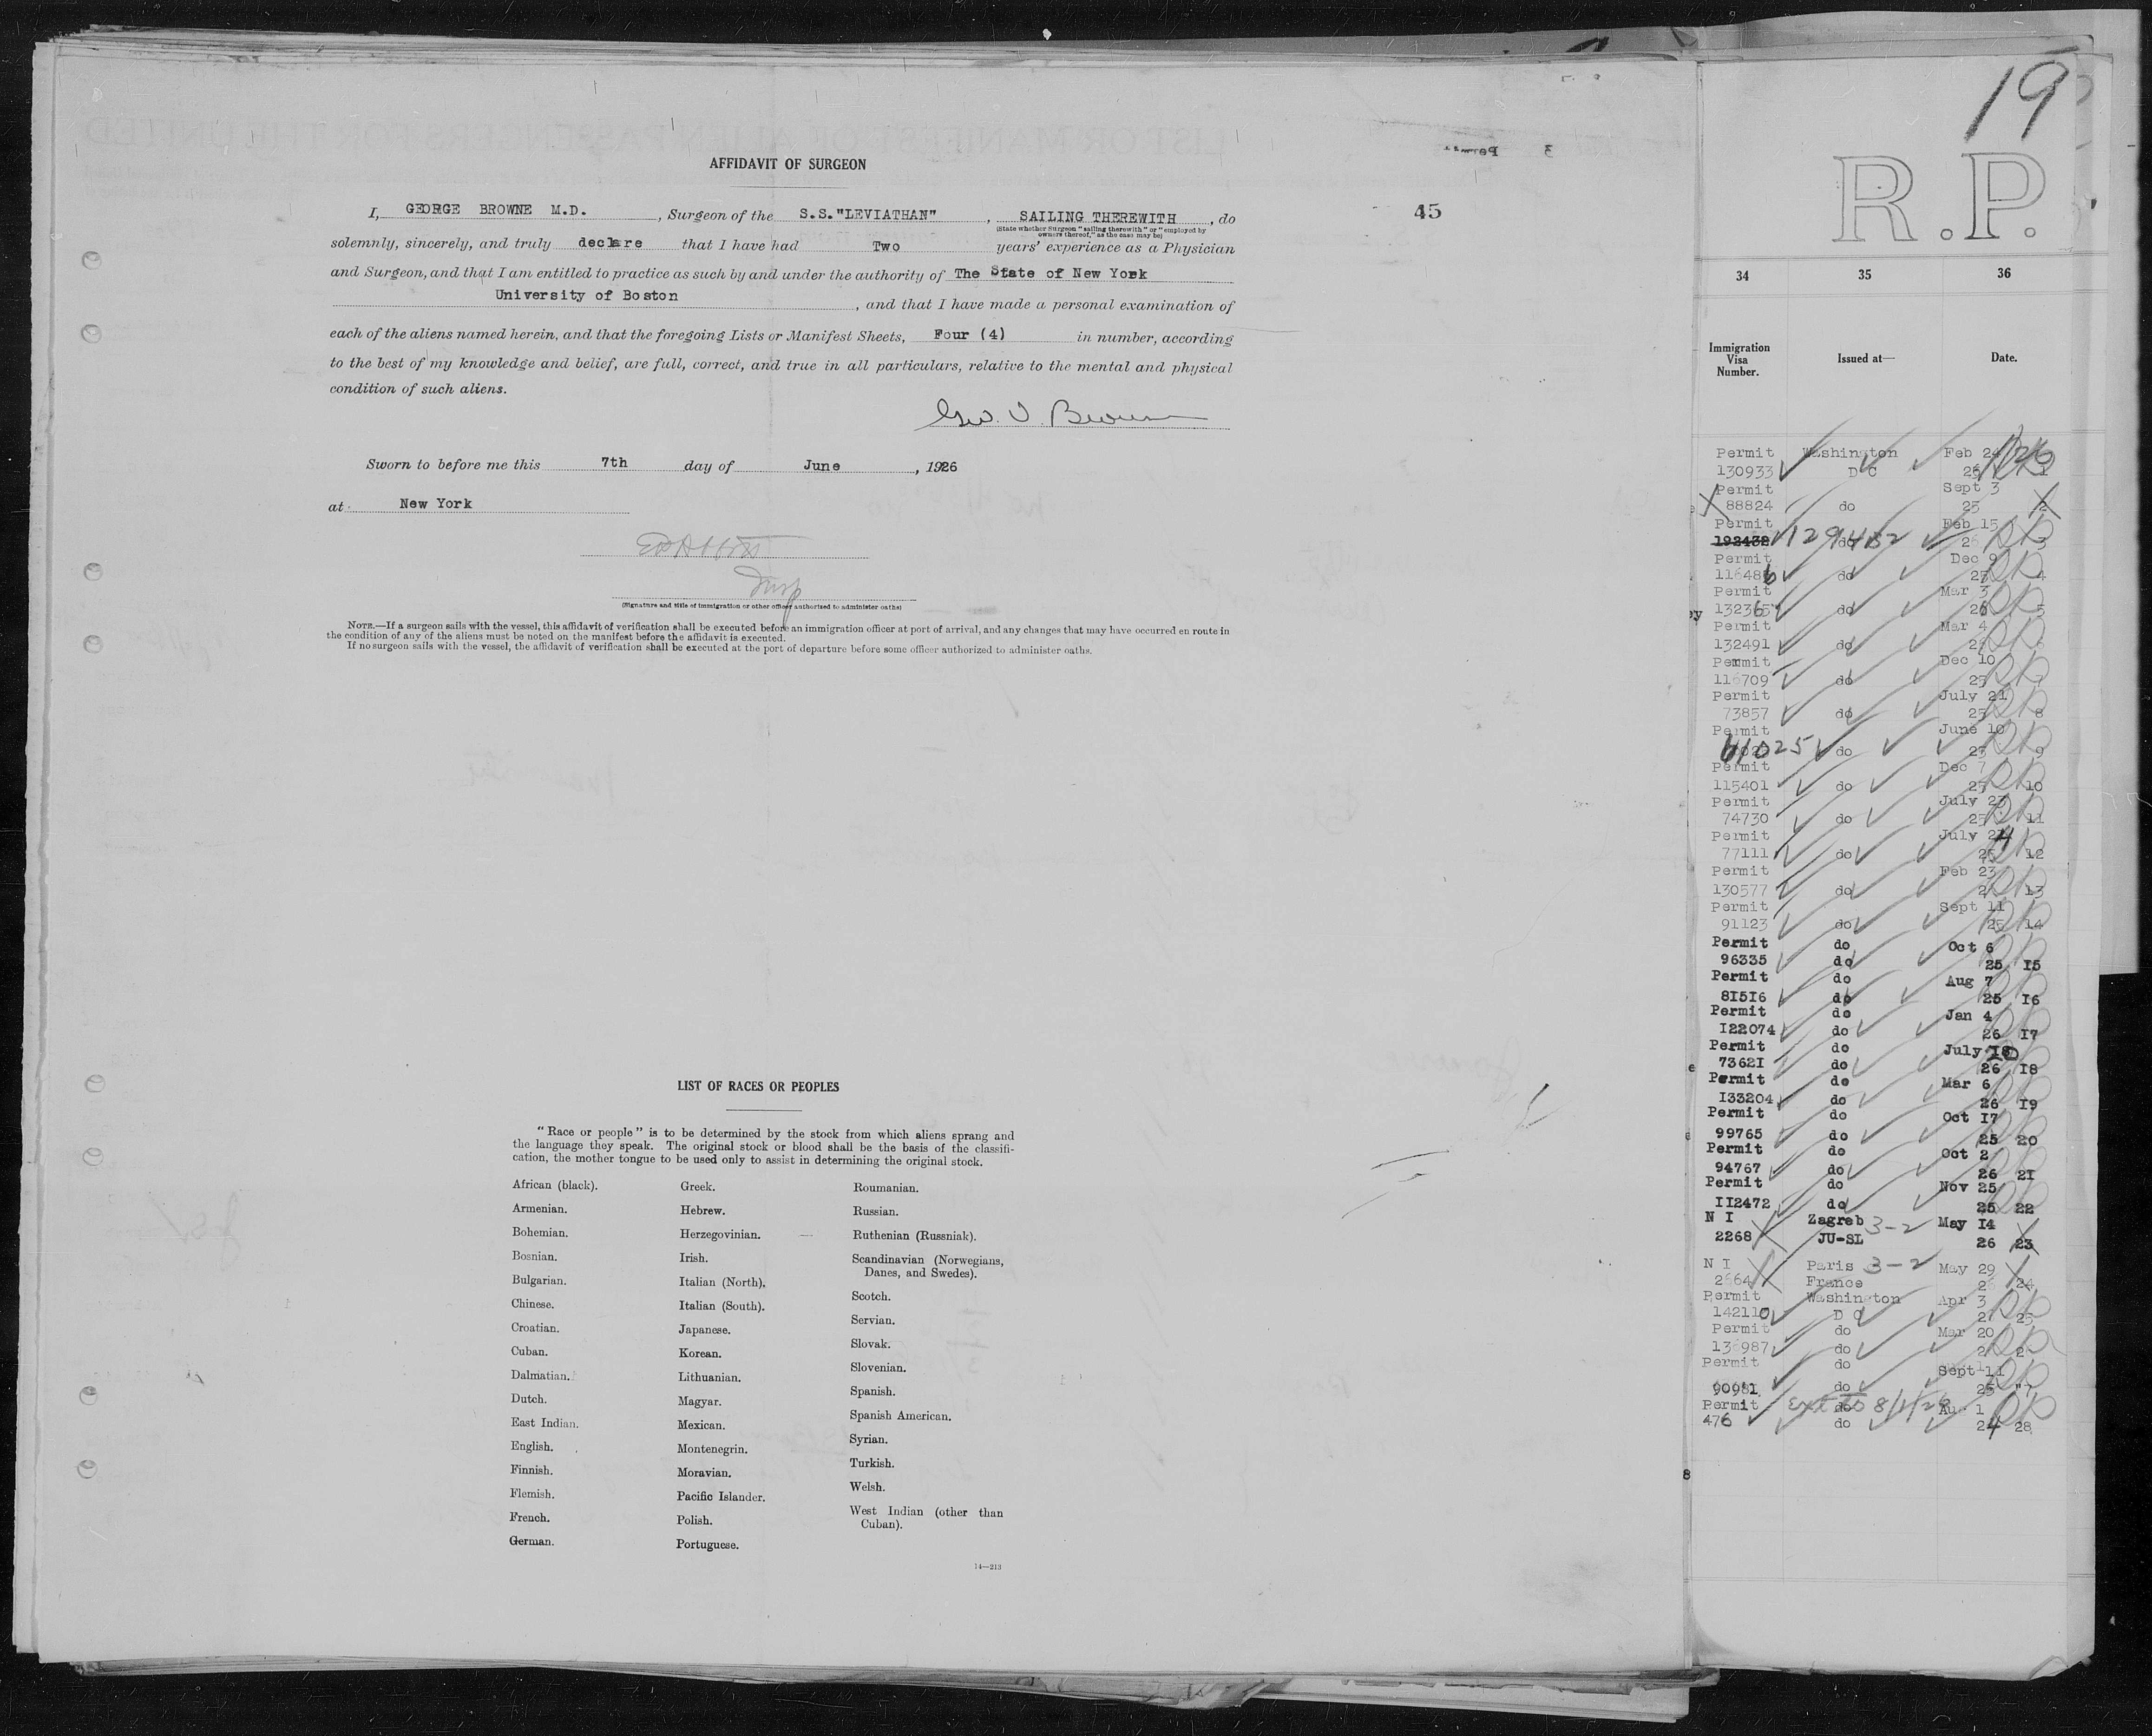 AFFIDAVIT OF SURGEON
I, GEORGE BROWNE M.D. , Surgeon of the S.S."LEVIATHAN" , SAILING THEREWITH , do
(State whether Surgeon "sailing therewith" or "employed by
owners thereof," as the case may be)
solemnly, sincerely, and truly declare that I have had Two years' experience as a Physician
and Surgeon, and that I am entitled to practice as such by and under the authority of The State of New York
University of Boston , and that I have made a personal examination of
each of the aliens named herein, and that the foregoing Lists or Manifest Sheets, Four (4) in number, according
to the best of my knowledge and belief, are full, correct, and true in all particulars, relative to the mental and physical
condition of such aliens.
Geo. V. Browne
Sworn to before me this 7th day of June , 1926
at New York
Insp
(Signature and title of immigration or other officer authorized to administer oaths)
NOTE.—If a surgeon sails with the vessel, this affidavit of verification shall be executed before an immigration officer at port of arrival, and any changes that may have occurred en route in
the condition of any of the aliens must be noted on the manifest before the affidavit is executed.
If no surgeon sails with the vessel, the affidavit of verification shall be executed at the port of departure before some officer authorized to administer oaths.
45
LIST OF RACES OR PEOPLES
"Race or people" is to be determined by the stock from which aliens sprang and
the language they speak. The original stock or blood shall be the basis of the classifi-
cation, the mother tongue to be used only to assist in determining the original stock.
African (black).
Armenian.
Bohemian.
Bosnian.
Bulgarian.
Chinese.
Croatian.
Cuban.
Dalmatian.
Dutch.
East Indian.
English.
Finnish.
Flemish.
French.
German.
Greek.
Hebrew.
Herzegovinian.
Irish.
Italian (North).
Italian (South).
Japanese.
Korean.
Lithuanian.
Magyar.
Mexican.
Montenegrin.
Moravian.
Pacific Islander.
Polish.
Portuguese.
Roumanian.
Russian.
Ruthenian (Russniak).
Scandinavian (Norwegians,
Danes, and Swedes).
Scotch.
Servian.
Slovak.
Slovenian.
Spanish.
Spanish American.
Syrian.
Turkish.
Welsh.
West Indian (other than
Cuban).
14—213
19
R.P.
34 35 36
Immigration
Visa
Number.
Issued at—
Date.
Permit Washington Feb 24
130933 D C 26 1
Permit Sept 3
88824 do 25 2
Permit Feb 15
192432 129432 do 26 3
Permit Dec 9
116486 do 25 4
Permit Mar 3
132365 do 26 5
Permit Mar 4
132491 do 26
Permit Dec 10
116709 do 25
Permit July 21
73857 do 25 8
Permit June 10
61025 do 25 9
Permit Dec 7
115401 do 25 10
Permit July 23
74730 do 25 11
Permit July 24
77111 do 25 12
Permit Feb 23
130577 do 26 13
Permit Sept 11
91123 do 25 14
Permit do Oct 6
96335 do 25 I5
Permit do Aug 7
8I5I6 do 25 I6
Permit do Jan 4
I22074 do 26 I7
Permit do July 20
7362I do 26 I8
Permit do Mar 6
I33204 do 26 I9
Permit do Oct I7
99765 do 25 20
Permit do Oct 2
94767 do 26 2I
Permit do Nov 25
II2472 do 25 22
N I Zagreb 3-2 May I4
2268 JU-SL 26 23
N I Paris 3-2 May 29
2664 France 26 24
Permit Washington Apr 3
142110 D C 25
Permit do Mar 20
136987 do
Permit do Sept 11
90981 do 25
Permit Ext to 8/1/26 do Aug 1
476 do 24 28